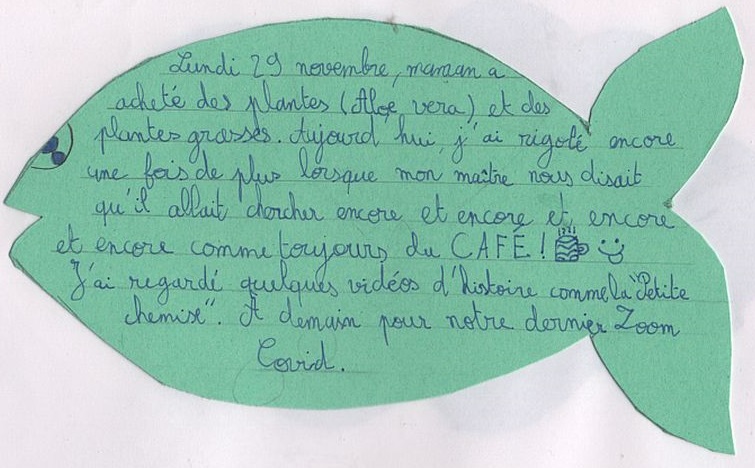 Lundi 29 novembre, maman a
acheté des plantes (Aloe vera) et des
plantes grasses. Aujourd'hui, j'ai rigolé encore
une fois de plus lorsque mon maître nous disait
qu'il allait chercher encore et encore et encore
et encore comme toujours du CAFÉ !
J'ai regardé quelques vidéos d'histoire comme la "Petite
chemise". A demain pour notre dernier Zoom
Covid.